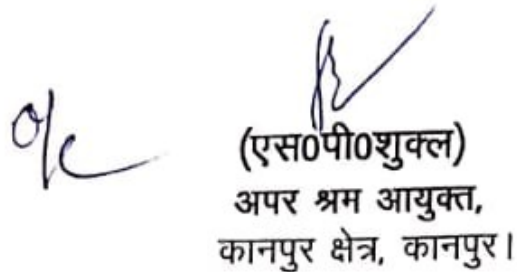 o/c
(एस0पी0शुक्ल)
अपर श्रम आयुक्त,
कानपुर क्षेत्र, कानपुर।